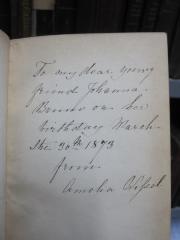 To my dear young
friend Johanna
Bruns on her
birthday March
the 30th 1873
from
Amelia